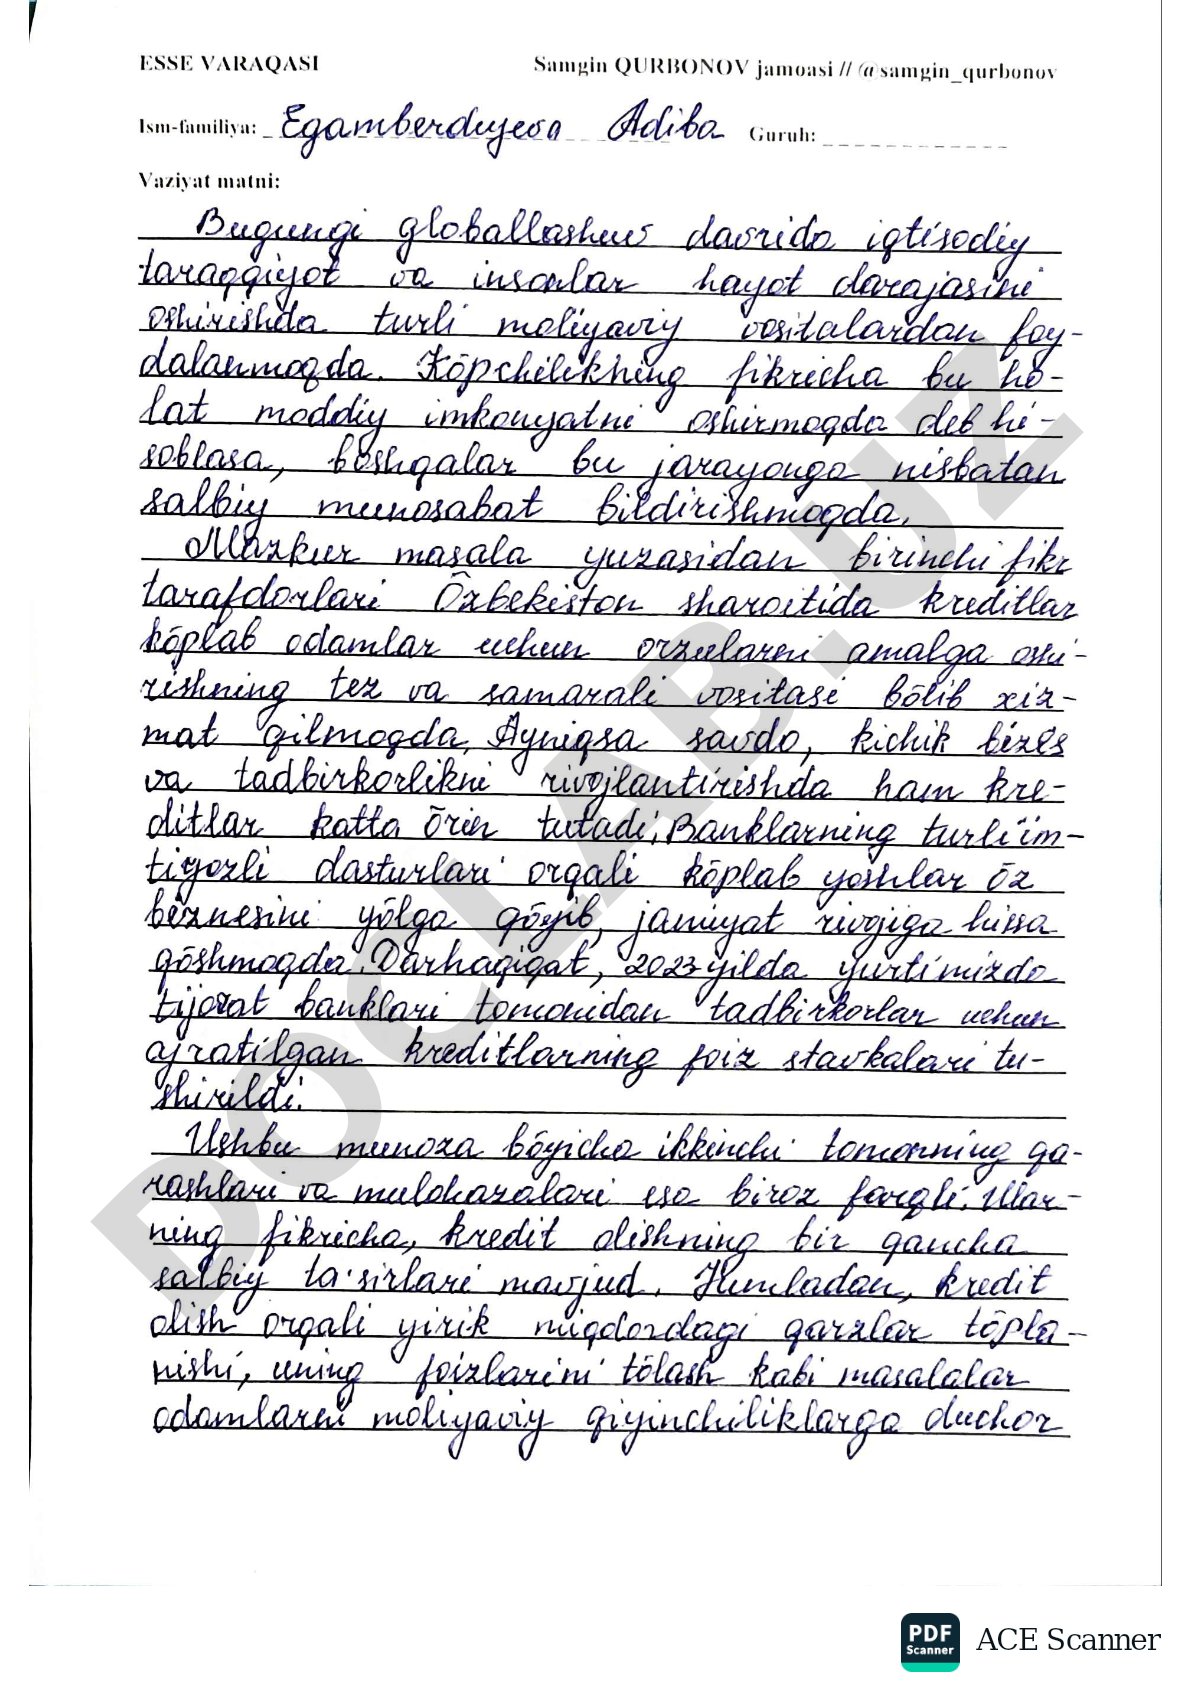 ESSE VARAQASI
Samgin QURBONOV jamoasi // @samgin_qurbonov
Ism-familiya: Egamberduyeva Adiba Guruh:
Vaziyat matni:
Bugungi globallashuv davrida iqtisodiy
taraqqiyot va insonlar hayot darajasini
oshirishda turli moliyaviy vositalardan foy-
dalanmoqda. Kōpchilikning fikricha bu ho-
lat moddiy imkonyatni oshirmoqda deb hi-
soblasa, boshqalar bu jarayonga nisbatan
salbiy munosabat bildirishmoqda.
Mazkur masala yuzasidan birinchi fikr
tarafdorlari Ōzbekiston sharoitida kreditlar
kōplab odamlar uchun orzularni amalga oshi-
rishning tez va samarali vositasi bōlib xiz-
mat qilmoqda. Ayniqsa savdo, kichik bizes
va tadbirkorlikni rivojlantirishda ham kre-
ditlar katta ōrin tutadi. Banklarning turli im-
tiyozli dasturlari orqali kōplab yoshlar ōz
biznesini yōlga qōyib, jamiyat rivojiga hissa
qōshmoqda. Darhaqiqat, 2023-yilda yurtimizda
tijorat banklari tomonidan tadbirkorlar uchun
ajratilgan kreditlarning foiz stavkalari tu-
shirildi.
Ushbu munoza bōyicha ikkinchi tomonning qa-
rashlari va mulohazalari esa biroz farqli. Ular-
ning fikricha, kredit olishning bir qancha
salbiy ta'sirlari mavjud. Jumladan, kredit
olish orqali yirik miqdordagi qarzlar tōpla-
nishi, uning foizlarini tōlash kabi masalalar
odamlarni moliyaviy qiyinchiliklarga duchor
DOCLAB.UZ
PDF
Scanner
ACE Scanner